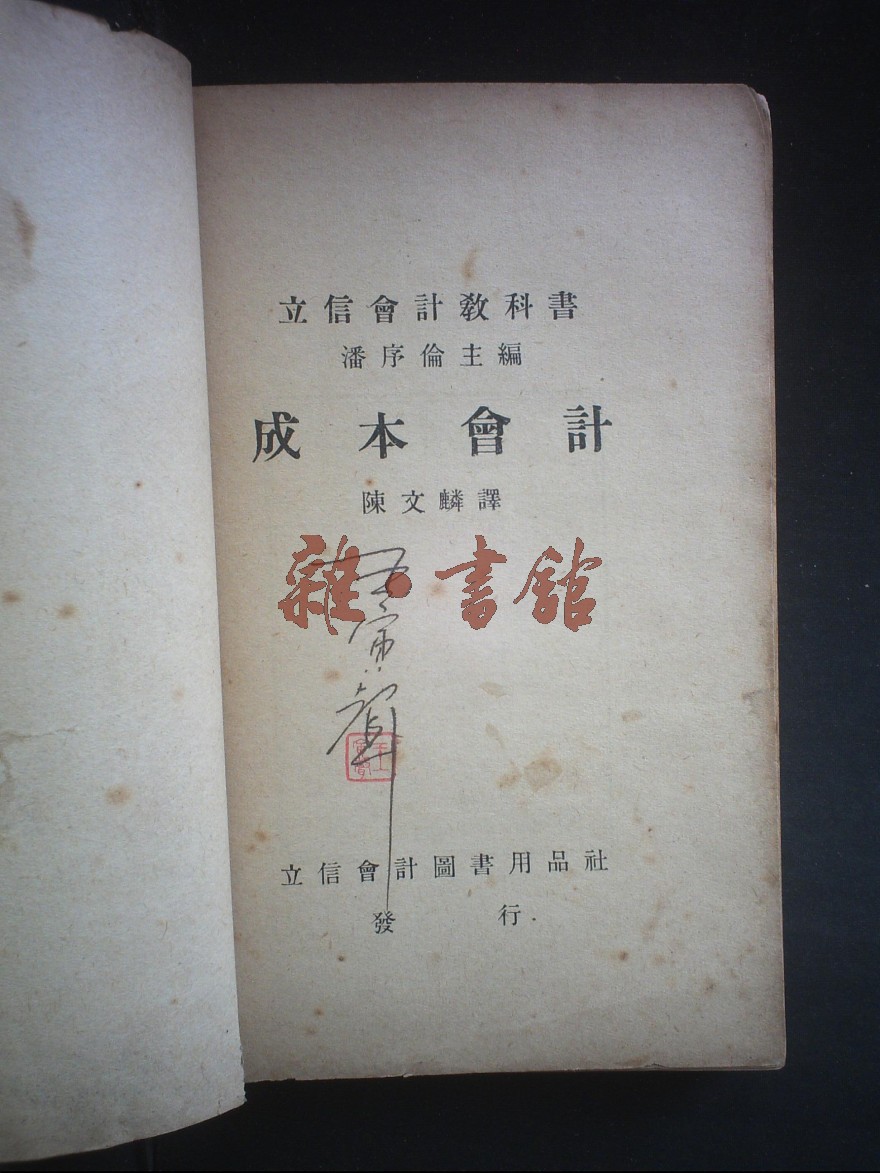 立信會計教科書
潘序倫主編
成本會計
陳文麟譯
雜·書館
立信會計圖書用品社
發行.